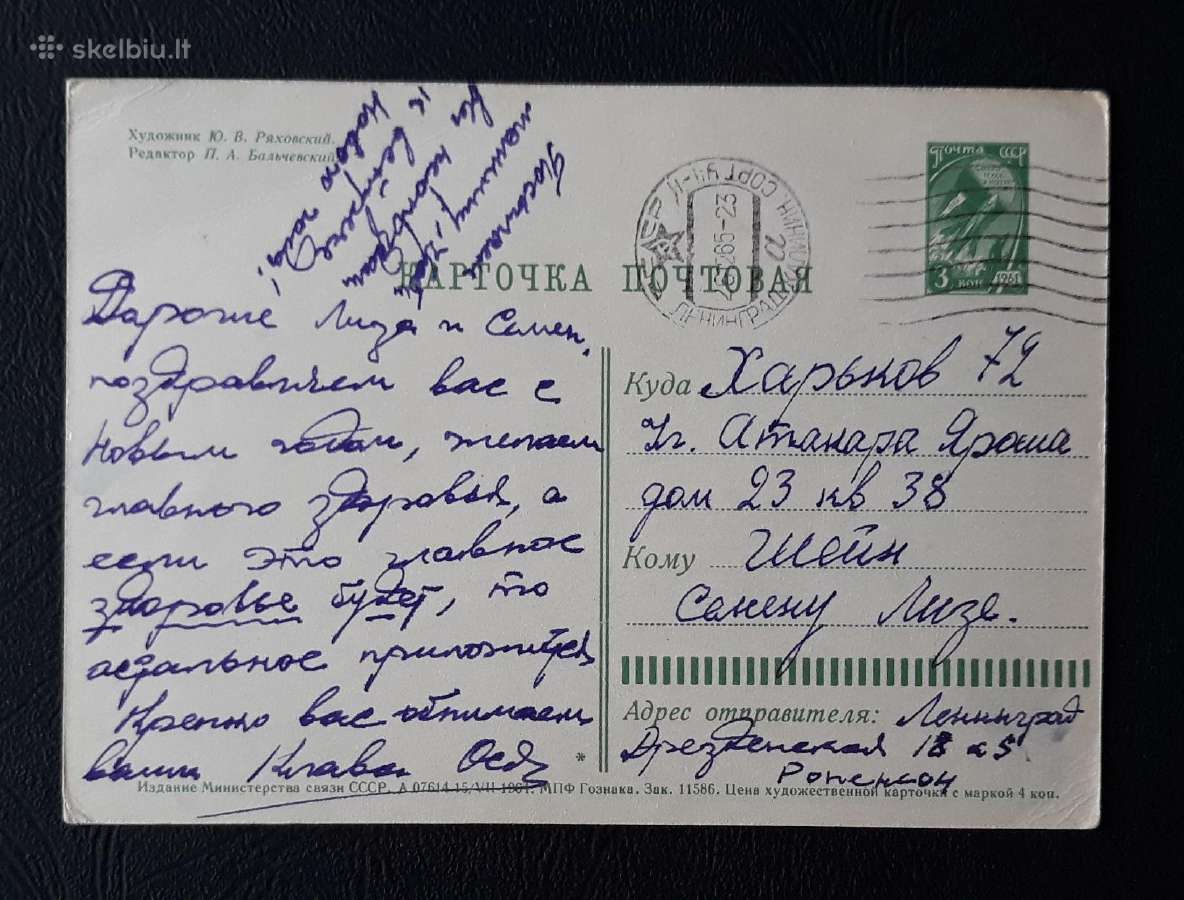 skelbiu.lt
Художник Ю. В. Ряховский.
Редактор П. А. Бальчевский
ПОЧТА СССР
3 КОП 1961
ЛЕНИНГРАД
КАРТОЧКА ПОЧТОВАЯ
Нового года!
Дарогие Лиза и Семен,
поздравляем вас с
Новым годом, желаем
главного здоровья, а
если это главное
здоровье будет, то
астальное приложится
Крепко вас обнимаем
ваши Клава Ося
Куда Харьков 72
Ул. Атакара Яроша
дом 23 кв 38
Кому Шейн
Семену Лизе.
Адрес отправителя: Ленинград
Дрезденская 18 к 5
*
Издание Министерства связи СССР. А 07614 15/VII-1961. МПФ Гознака. Зак. 11586. Цена художественной карточки с маркой 4 коп.